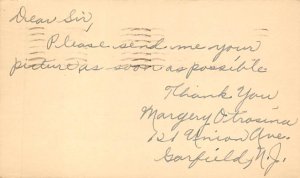 Dear Sir,
Please send me your
picture as soon as possible
Thank You
Margery Otrosina
121 Union Ave.
Garfield, N.J.